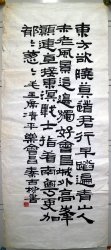 東方欲曉莫道君行早踏遍青山人
未老風景這邊獨好會昌城外高峰
顛連直接東溟戰士指看南粵更加
郁〻葱〻毛主席清平樂會昌